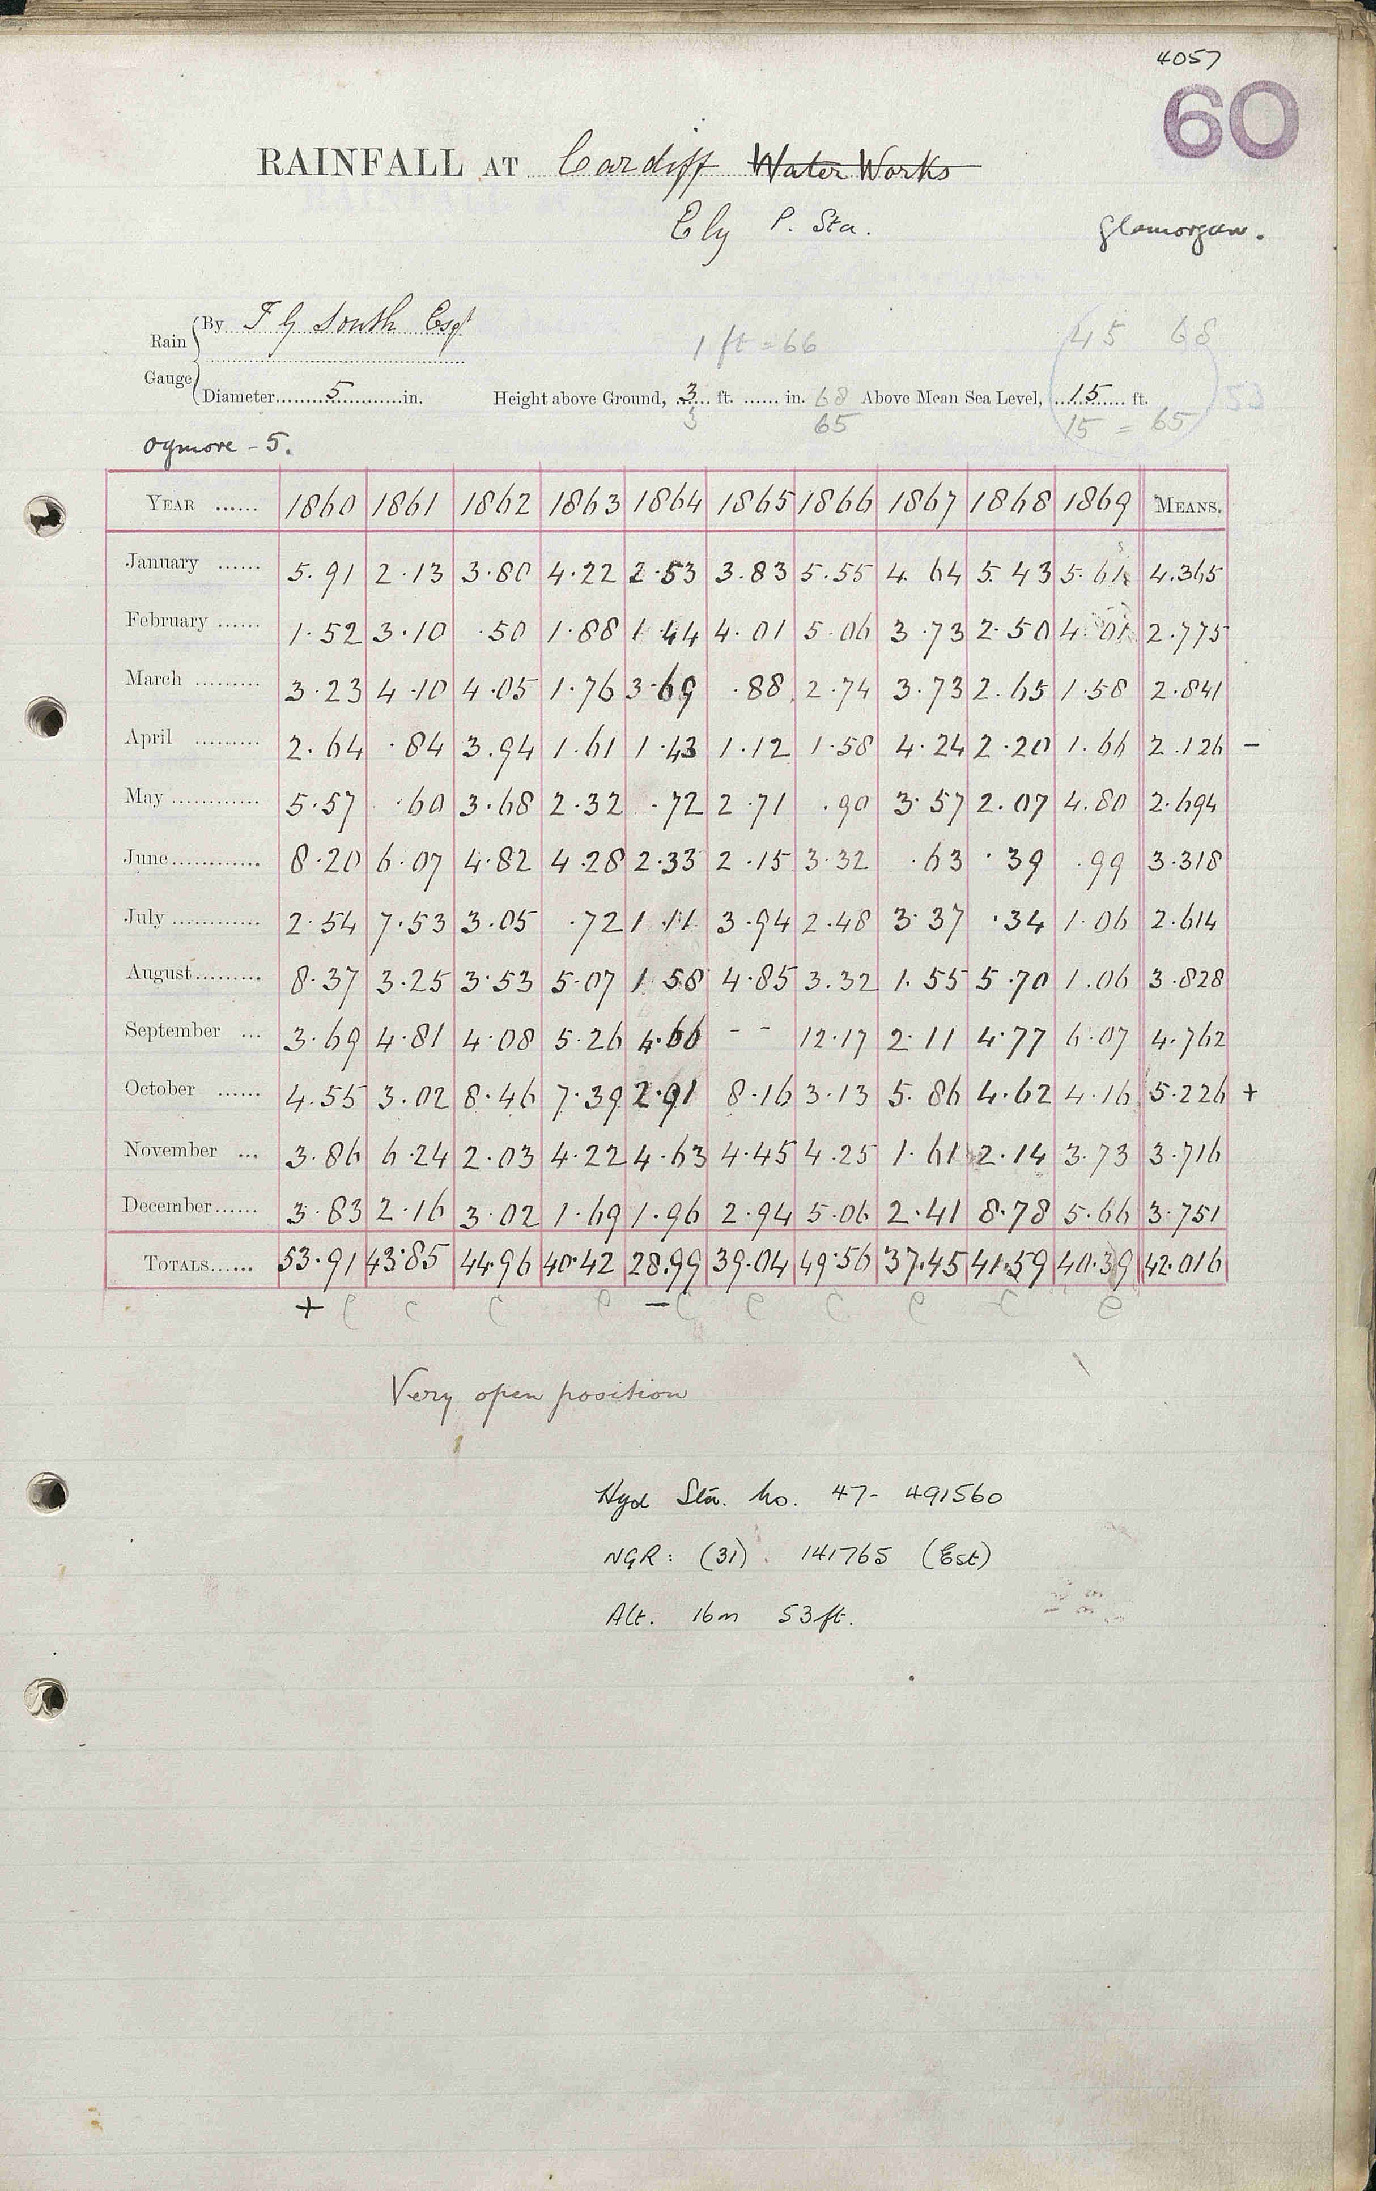 4057
60
RAINFALL AT Cardiff Water Works
Ely P. Sta.
Glamorgan.
Rain Gauge
By F G South Esqr
1 ft = 66
45 68
Diameter 5 in. Height above Ground, 3 ft. in. 68 Above Mean Sea Level, 15 ft. 53
3 65 15 = 65
Ogmore - 5.
YEAR 1860 1861 1862 1863 1864 1865 1866 1867 1868 1869 MEANS.
January 5.91 2.13 3.80 4.22 2.53 3.83 5.55 4.64 5.43 5.61 4.365
February 1.52 3.10 .50 1.88 1.44 4.01 5.06 3.73 2.50 4.01 2.775
March 3.23 4.10 4.05 1.76 3.69 .88 2.74 3.73 2.65 1.58 2.841
April 2.64 .84 3.94 1.61 1.43 1.12 1.58 4.24 2.20 1.66 2.126 -
May 5.57 .60 3.68 2.32 .72 2.71 .90 3.57 2.07 4.80 2.694
June 8.20 6.07 4.82 4.28 2.33 2.15 3.32 .63 .39 .99 3.318
July 2.54 7.53 3.05 .72 1.11 3.94 2.48 3.37 .34 1.06 2.614
August 8.37 3.25 3.53 5.07 1.58 4.85 3.32 1.55 5.70 1.06 3.828
September 3.69 4.81 4.08 5.26 4.66 - - 12.17 2.11 4.77 6.07 4.762
October 4.55 3.02 8.46 7.39 2.91 8.16 3.13 5.86 4.62 4.16 5.226 +
November 3.86 6.24 2.03 4.22 4.63 4.45 4.25 1.61 2.14 3.73 3.716
December 3.83 2.16 3.02 1.69 1.96 2.94 5.06 2.41 8.78 5.66 3.751
TOTALS 53.91 43.85 44.96 40.42 28.99 39.04 49.56 37.45 41.59 40.39 42.016
+ C C C C - C C C C C C
Very open position
Hyd Sta. No. 47- 491560
NGR: (31) 141765 (Est)
Alt. 16m 53ft.